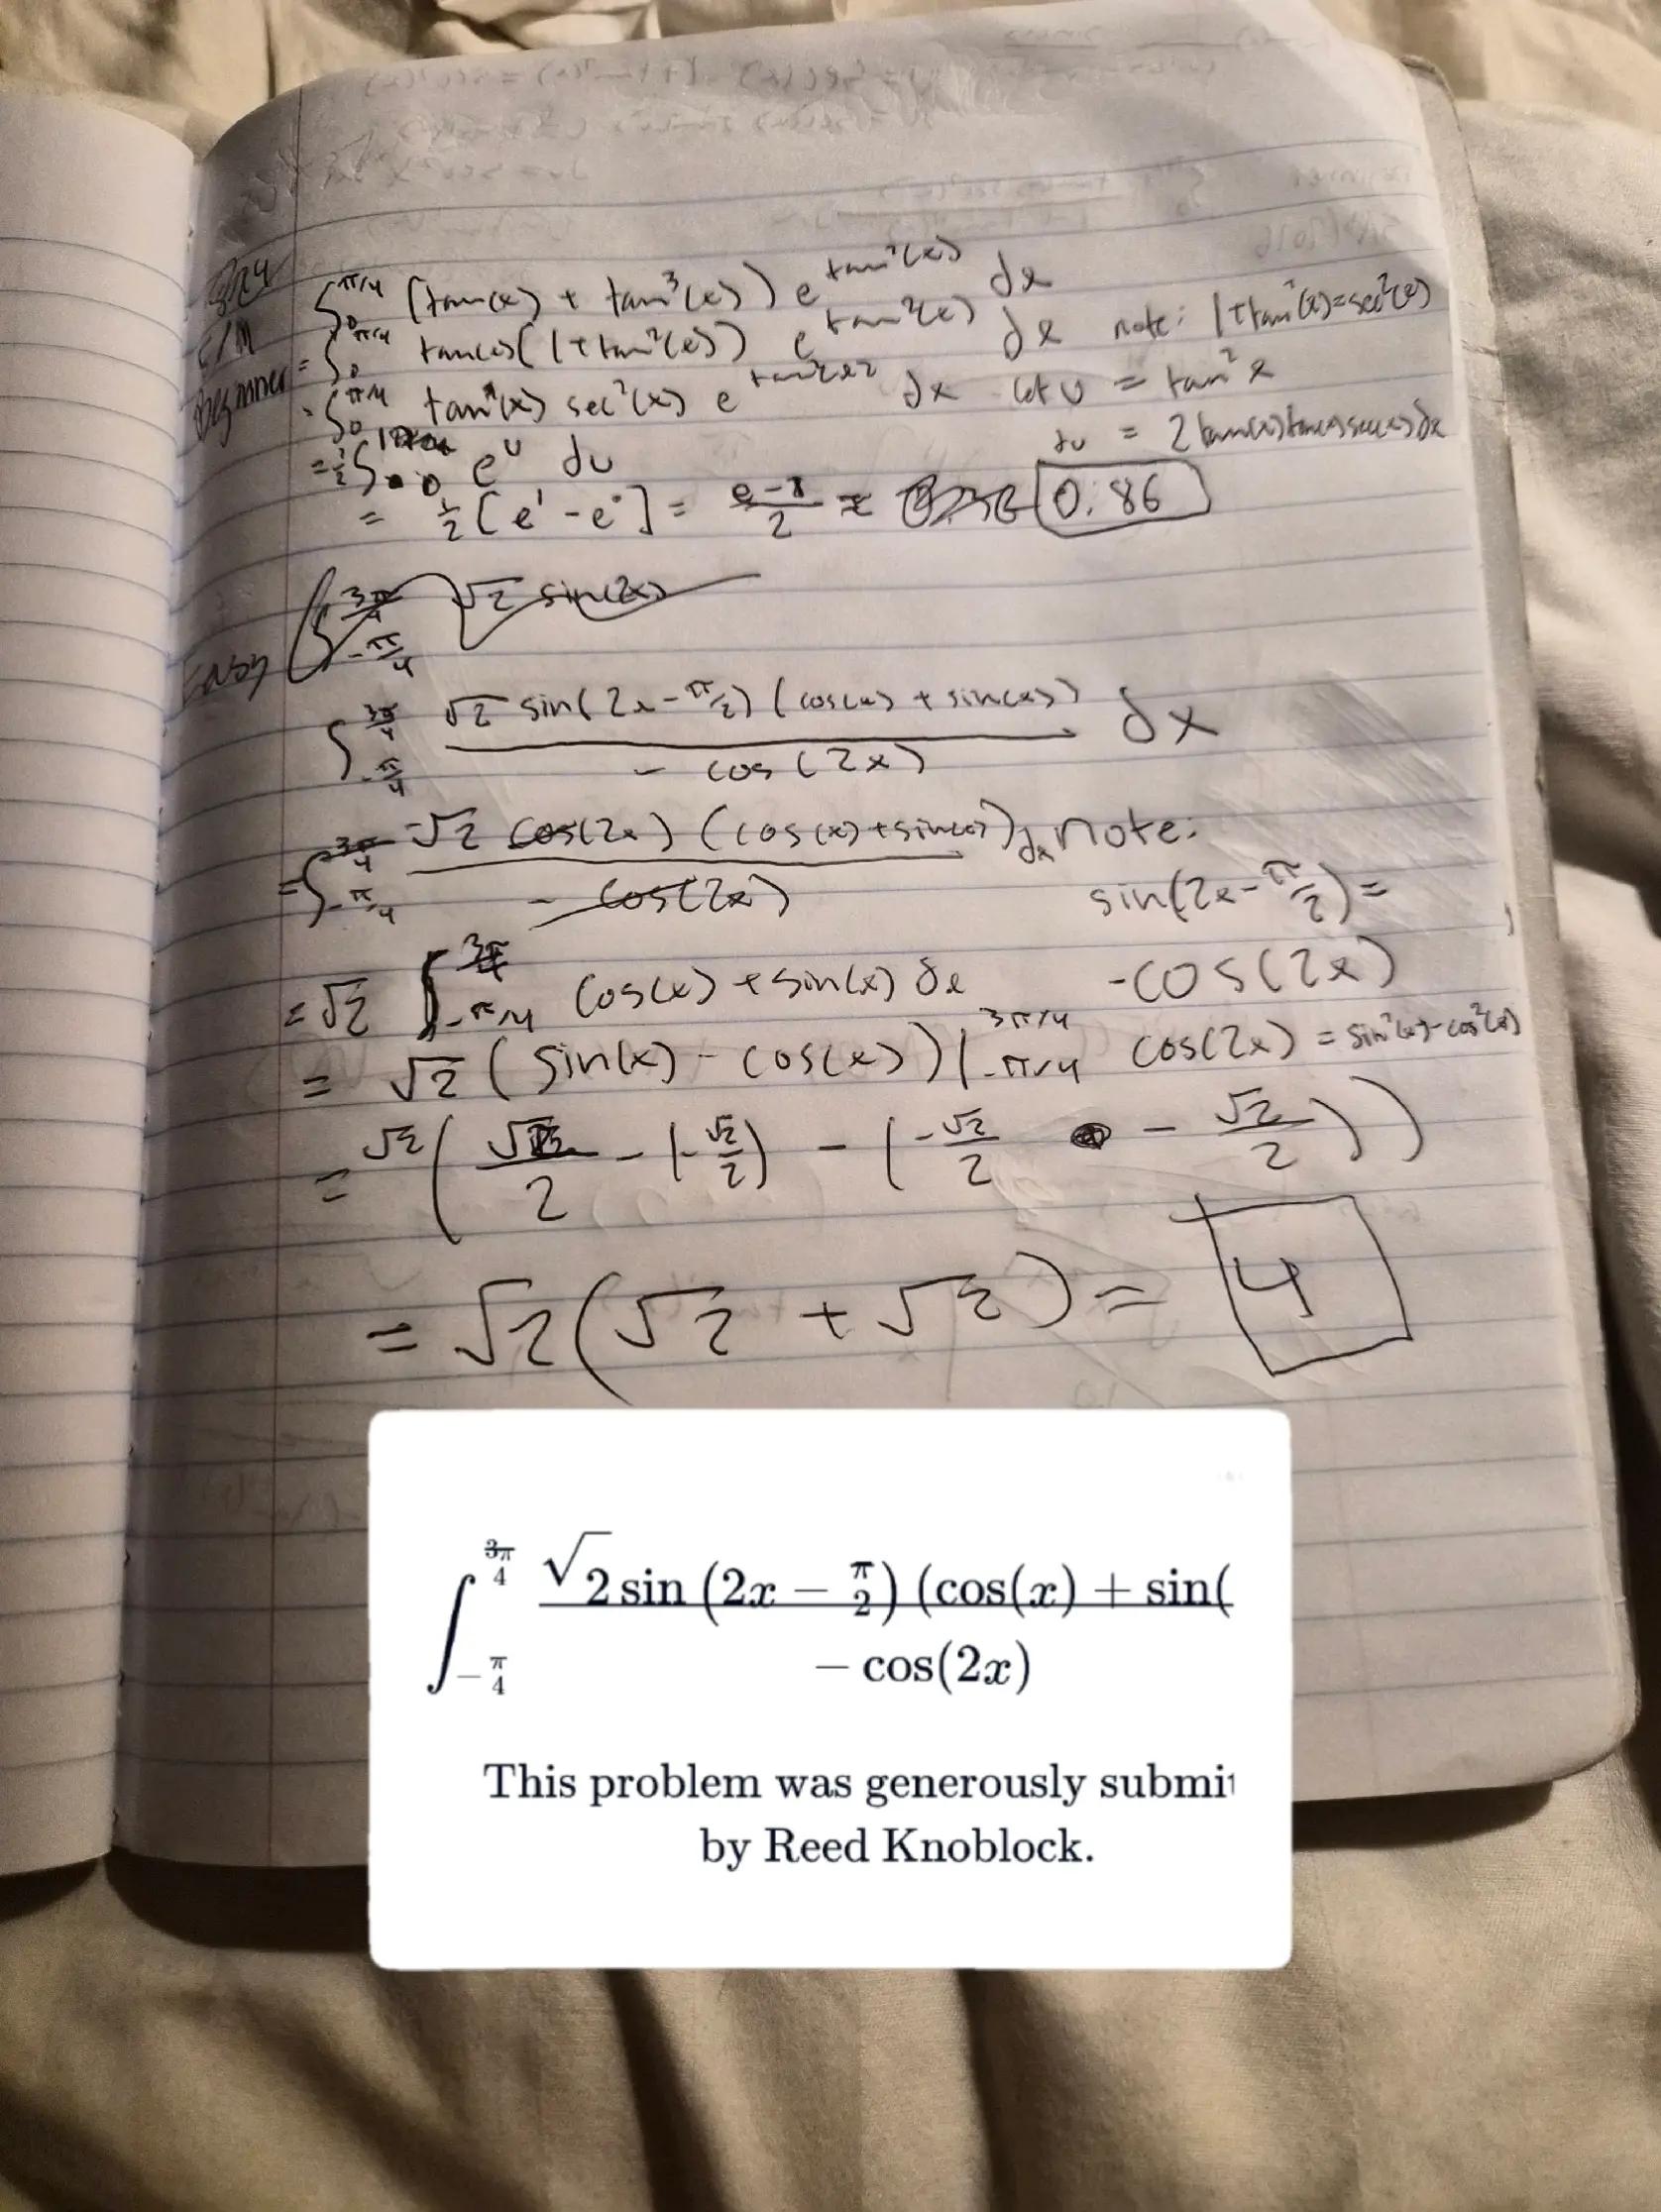 E/M
Beginner
∫₀^π/4 (tan(x) + tan³(x)) e^tan²(x) dx
= ∫₀^π/4 tan(x)(1+tan²(x)) e^tan²(x) dx note: 1+tan²(x)=sec²(x)
= ∫₀^π/4 tan(x) sec²(x) e^tan²(x) dx let u = tan²x
= ½∫₀^1 e^u du du = 2tan(x)
= ½[e¹-e°] = e-1/2 ≈ 0.86
Easy ∫_-π/4^3π/4 √2 sin(2x)
∫_-π/4^3π/4 √2 sin(2x-π/2)(cos(x)+sin(x)) / -cos(2x) dx
= ∫_-π/4^3π/4 -√2 cos(2x)(cos(x)+sin(x)) / -cos(2x) dx note:
sin(2x-π/2)=
-cos(2x)
= √2 ∫_-π/4^3π/4 cos(x)+sin(x) dx
= √2(sin(x)-cos(x))|_-π/4^3π/4 cos(2x) = sin²(x)-cos²(x)
= √2(√2/2-(-√2/2)-(-√2/2 - √2/2))
= √2(√2+√2) = 4
∫_-π/4^3π/4 √2 sin(2x − π/2)(cos(x) + sin( / − cos(2x)
This problem was generously submit
by Reed Knoblock.